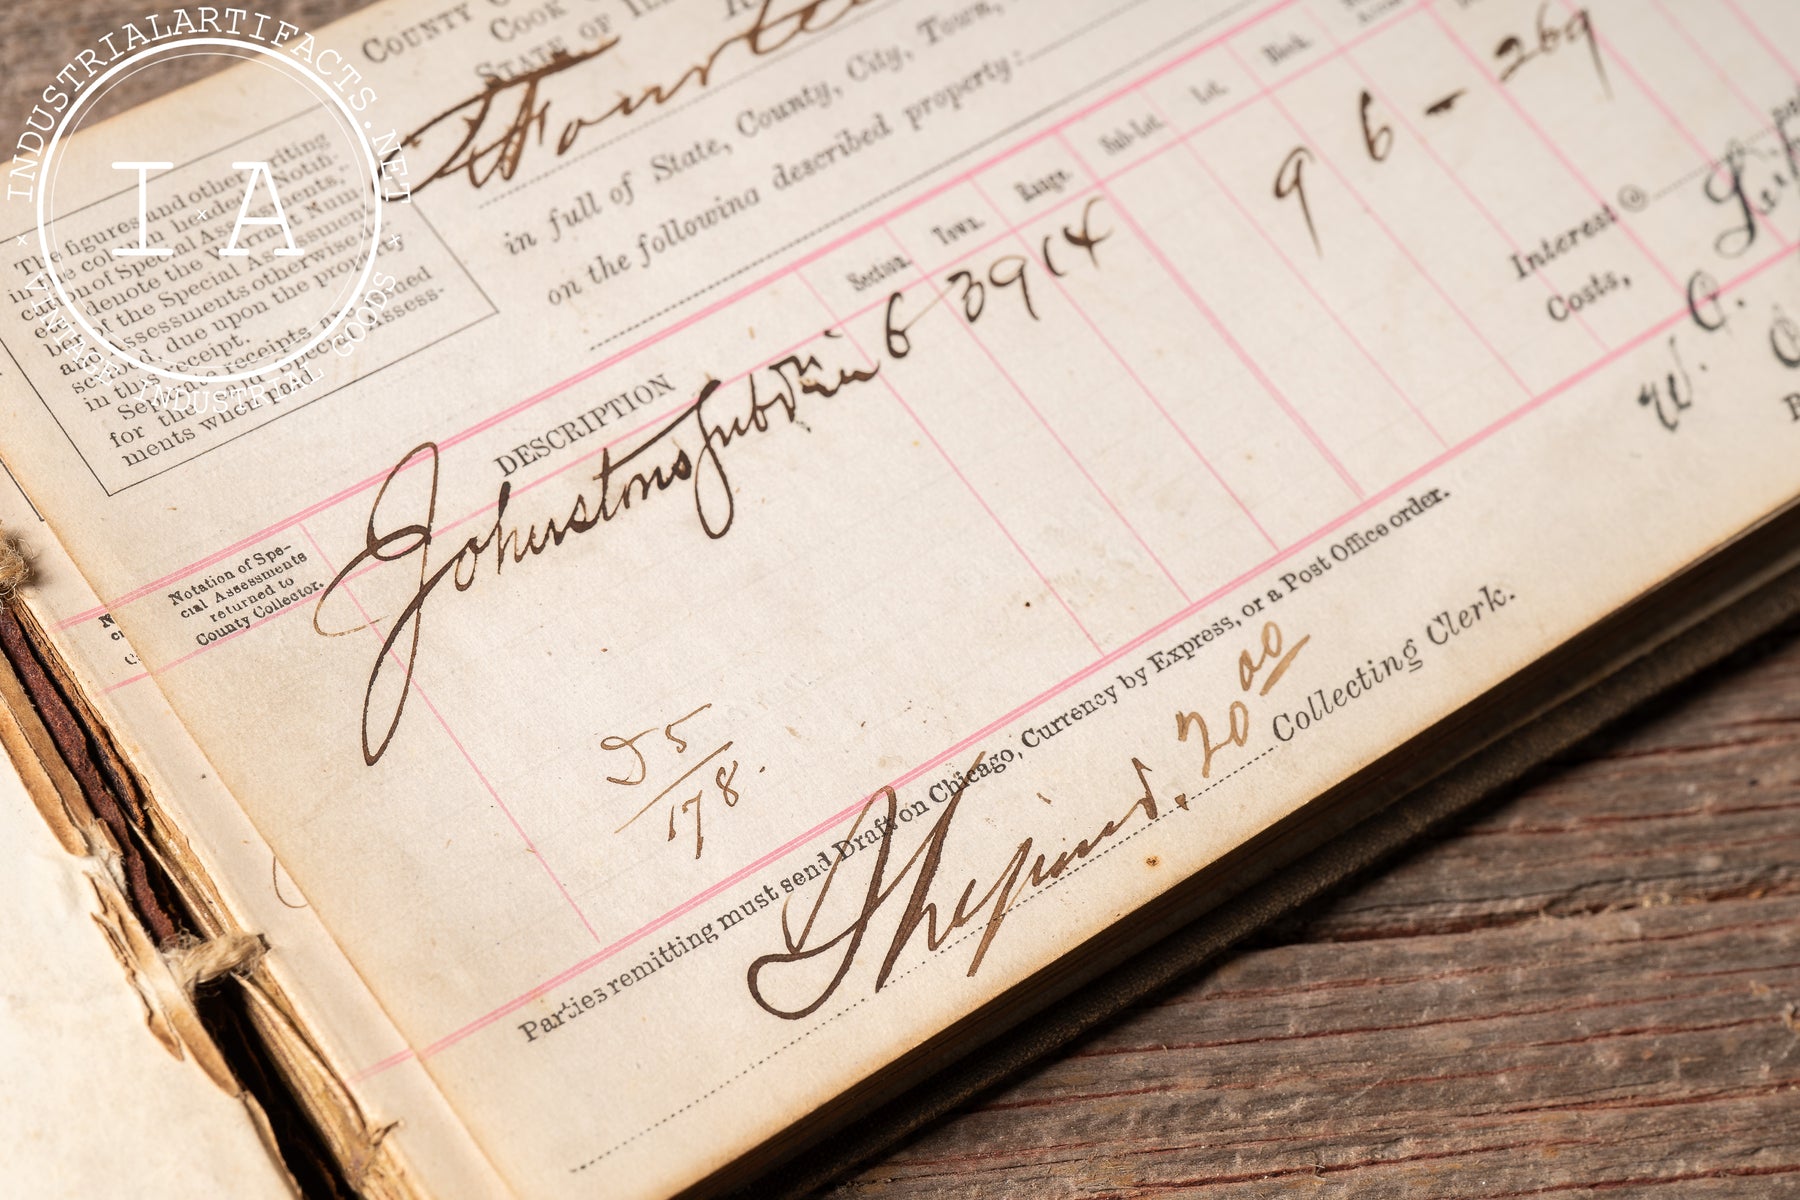 INDUSTRIALARTIFACTS.NET
IA
VINTAGE INDUSTRIAL GOODS
COUNTY
COOK
STATE OF
in full of State, County, City, Town,
on the following described property:
The figures and other writing
in the column headed "Notifi-
cation of Special Assessments,"
denote the Warrant Num-
ber of the Special Assessment
and Assessments otherwise de-
scribed, due upon the property
in this receipt.
Separate receipts are issued
for the said Special Assess-
ments when paid.
Notation of Spe-
cial Assessments
returned to
County Collector.
DESCRIPTION
Section.
Town.
Range.
Sub-Lot.
Lot.
Block.
Johnstons Subdvin 6 39 14 9 6 - 269
Interest @
Costs,
W. G.
55
178.
Parties remitting must send Draft on Chicago, Currency by Express, or a Post Office order.
20 00
Collecting Clerk.